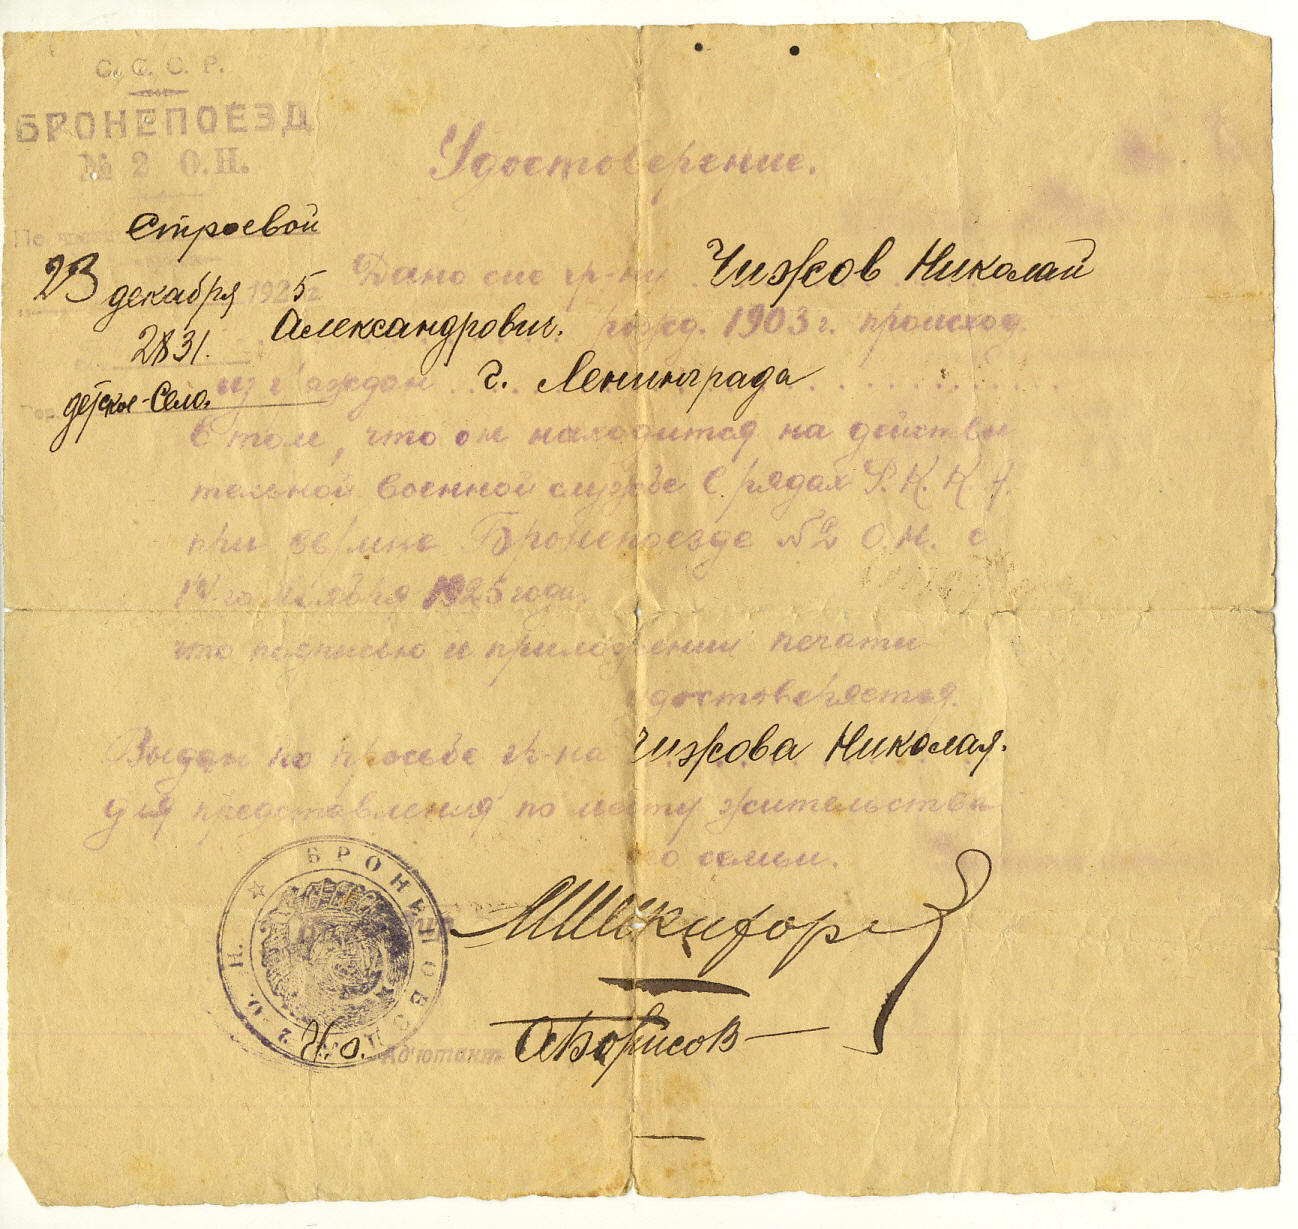 С. С. С. Р.
БРОНЕПОЕЗД
№ 2 О.Н.
По части
Строевой
23 декабря 1925 г.
2831.
детское-Село.
Удостоверение.
Дано сие гр-ну Чижов Николай
Александрович. рожд. 1903 г. происход.
из граждан г. Ленинграда
В том, что он находится на действи
тельной военной службе в рядах Р.К.К.А.
при Бронепоезде №2 О.Н. с
1925 года.
что подписью и приложении печати
удостоверяется.
Выдан по просьбе гр-на Чижова Николая.
для представления по месту жительства
его семьи.
БРОНЕПОЕЗД № 2 О. Н.
И.о. Адъютант А Борисов